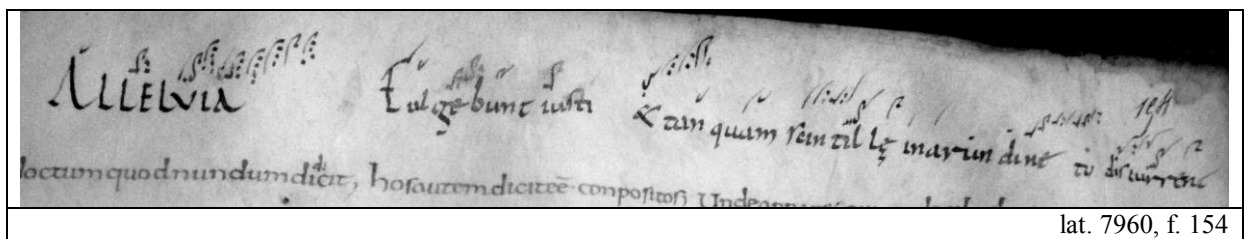 ALLELVIA Fulgebunt iusti & tan quam scin til lę inarun dine to discurrent
doctum quod nundum dicit, hos autem dicit eē conpositos Unde
lat. 7960, f. 154